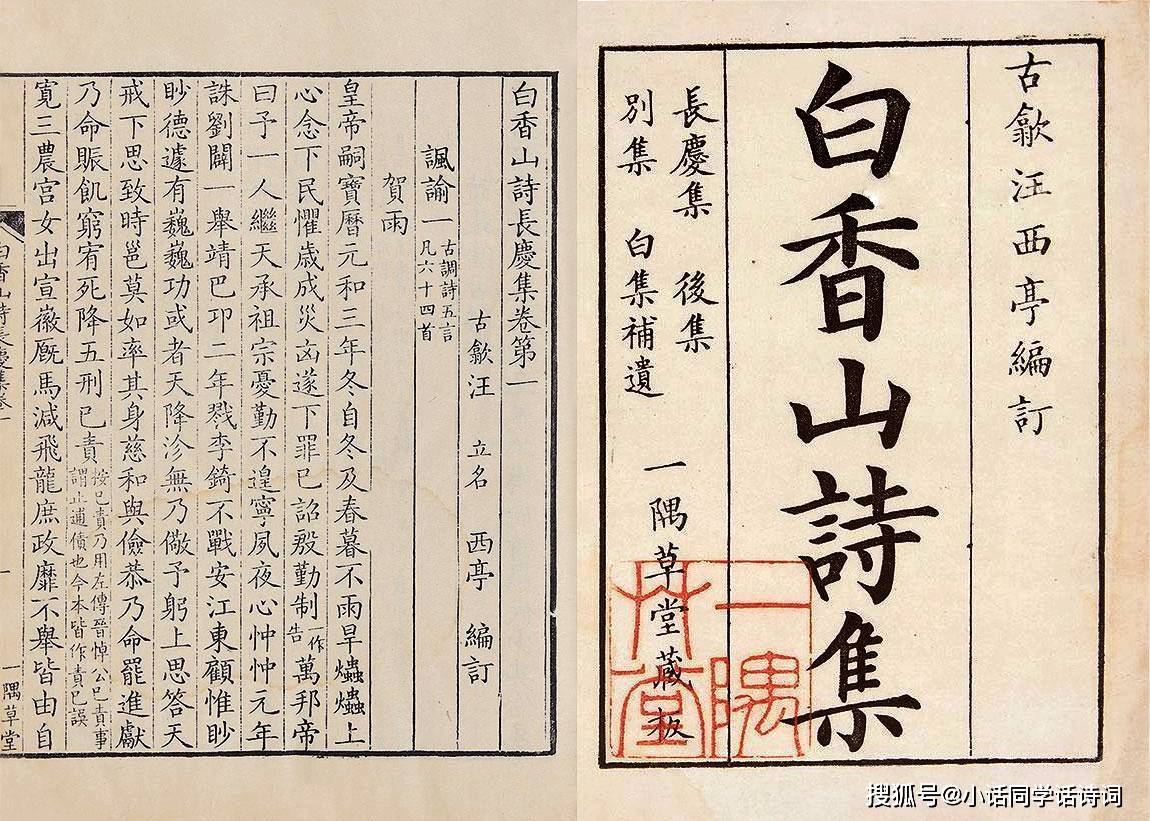 古歙汪西亭編訂
白香山詩集
長慶集 後集
別集 白集補遺
一隅草堂藏板
一隅草堂
白香山詩長慶集卷第一
古歙汪 立名 西亭 編訂
諷諭一 古調詩五言
凡六十四首
賀雨
皇帝嗣寶曆元和三年冬自冬及春暮不雨旱爞爞上
心念下民懼歲成災凶遂下罪已詔殷勤制一作告萬邦帝
曰予一人繼天承祖宗憂勤不遑寧夙夜心忡忡元年
誅劉闢一舉靖巴卭二年戮李錡不戰安江東顧惟眇
眇德遽有巍巍功或者天降沴無乃儆予躬上思答天
戒下思致時邕莫如率其身慈和與儉恭乃命罷進獻
乃命賑飢窮宥死降五刑已責按已責乃用左傳晉悼公已責事
謂止逋債也今本皆作責已誤
寛三農宮女出宣徽厩馬减飛龍庶政靡不舉皆由自
白香山詩長慶集卷一
一
一隅草堂
搜狐号@小话同学话诗词